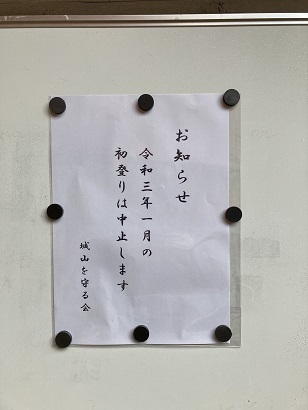 お知らせ
令和三年一月の
初登りは中止します
城山を守る会